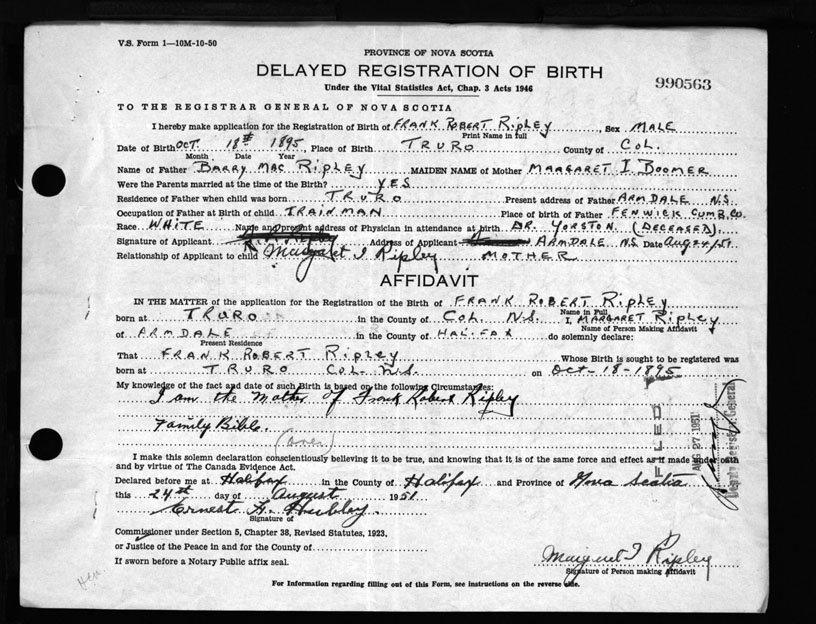 V.S. Form 1—10M-10-50
PROVINCE OF NOVA SCOTIA
DELAYED REGISTRATION OF BIRTH
990563
Under the Vital Statistics Act, Chap. 3 Acts 1946
TO THE REGISTRAR GENERAL OF NOVA SCOTIA
I hereby make application for the Registration of Birth of FRANK ROBERT RIPLEY, Sex MALE
Print Name in full
Date of Birth OCT. 18th 1895, Place of Birth TRURO County of COL.
Month Date Year
Name of Father BARRY MAC RIPLEY MAIDEN NAME of Mother MARGARET I BOOMER
Were the Parents married at the time of the Birth? YES
Residence of Father when child was born TRURO Present address of Father ARMDALE N.S.
Occupation of Father at Birth of child TRAINMAN Place of birth of Father FENWICK CUMB. CO.
Race WHITE Name and present address of Physician in attendance at birth DR. YORSTON (DECEASED).
Signature of Applicant Address of Applicant ARMDALE N.S. Date Aug 24/51
Relationship of Applicant to child Margaret I Ripley MOTHER
AFFIDAVIT
IN THE MATTER of the application for the Registration of the Birth of FRANK ROBERT RIPLEY
Name in Full
born at TRURO in the County of COL. N.S. I, MARGARET RIPLEY
Name of Person Making Affidavit
of ARMDALE in the County of HALIFAX do solemnly declare:
Present Residence
That FRANK ROBERT RIPLEY Whose Birth is sought to be registered was
born at TRURO COL. N.S. on Oct-18-1895
My knowledge of the fact and date of such Birth is based on the following Circumstances:
I am the Mother of Frank Robert Ripley
Family Bible.
(over)
FILED
AUG 27 1951
Deputy Registrar General
I make this solemn declaration conscientiously believing it to be true, and knowing that it is of the same force and effect as if made under oath
and by virtue of The Canada Evidence Act.
Declared before me at Halifax in the County of Halifax and Province of Nova Scotia
this 24th day of August 1951
Ernest G. Hubley
Signature of
Commissioner under Section 5, Chapter 38, Revised Statutes, 1923,
or Justice of the Peace in and for the County of
If sworn before a Notary Public affix seal.
Margaret I Ripley
Signature of Person making Affidavit
For Information regarding filling out of this Form, see instructions on the reverse side.